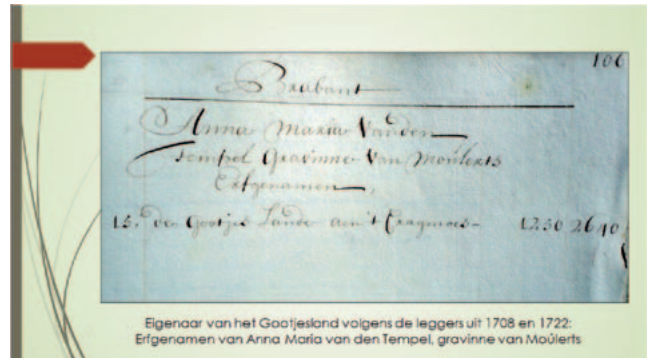 106
Brabant
Anna Maria Vanden
Tempel Gravinne Van Moúlerts
Erfgenamen
15. den Gootjes Lande aen't 1250 2640
Eigenaar van het Gootjesland volgens de leggers uit 1708 en 1722:
Erfgenamen van Anna Maria van den Tempel, gravinne van Moúlerts